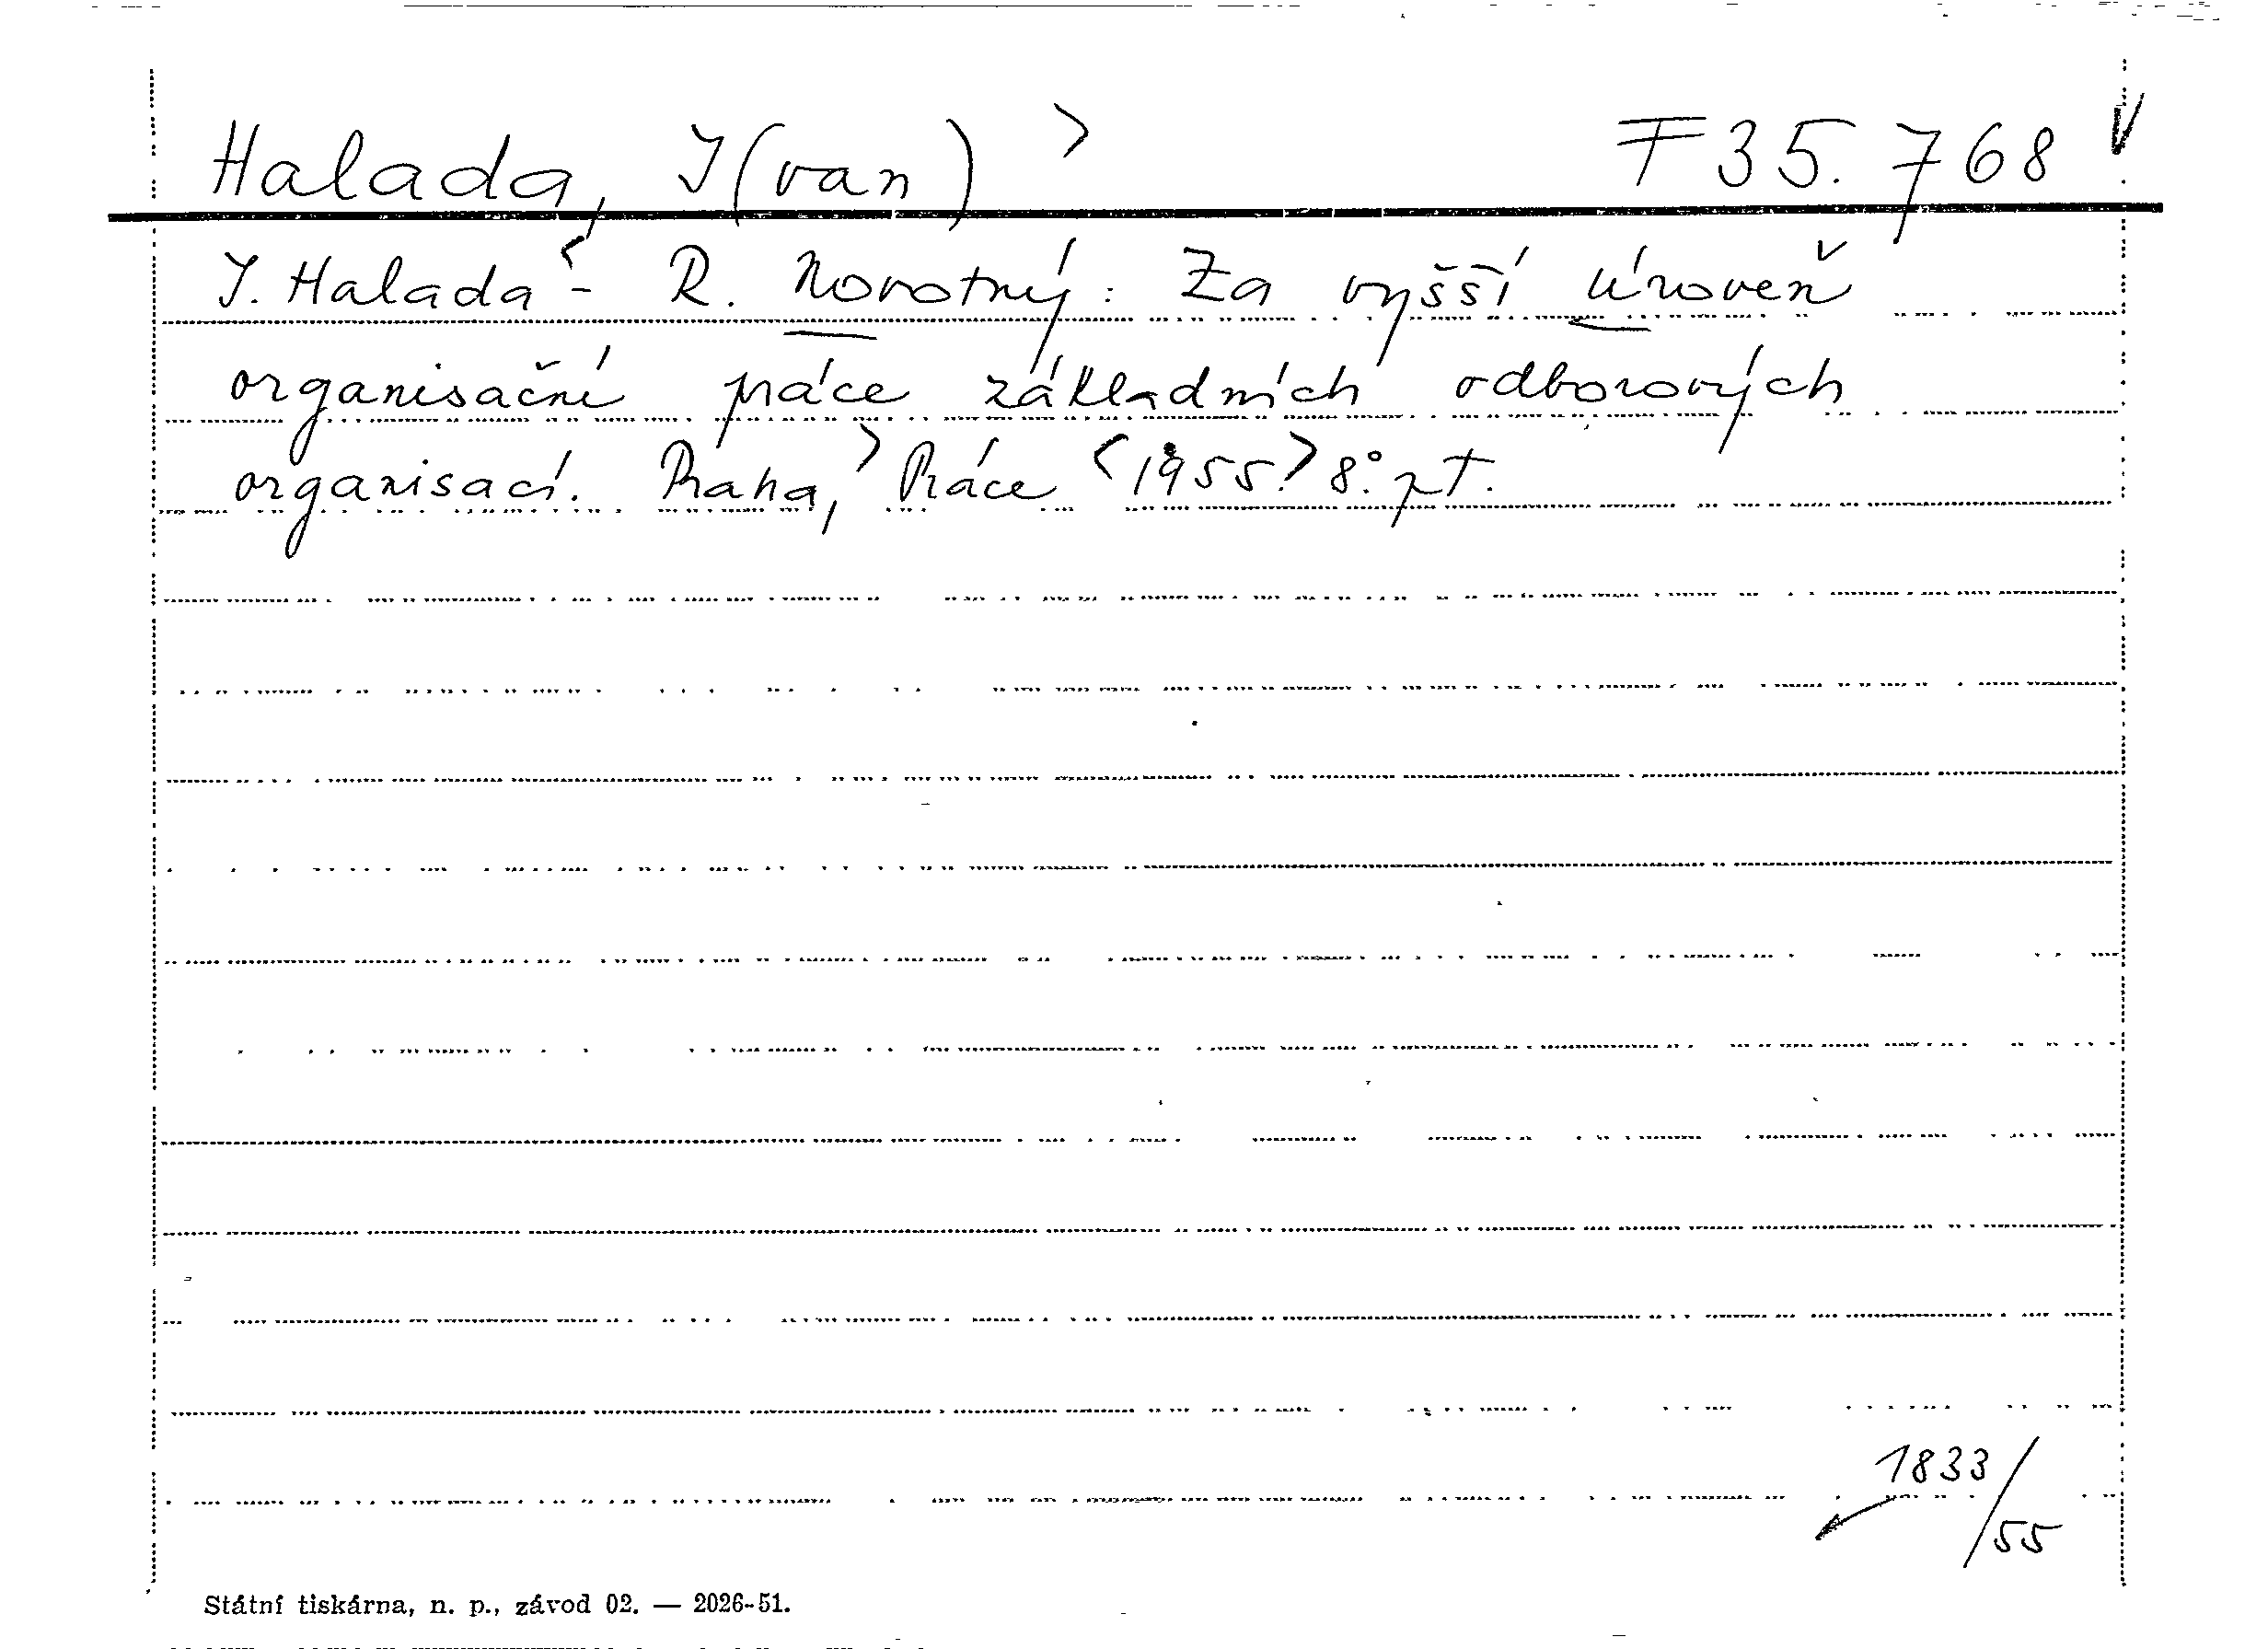 Halada, I(van) > F 35.768 V
I. Halada < - R. Novotný: Za vyšší úroveň
organisační práce základních odborových
organisací. Praha, > Práce <1955> 8°. pt.
1833/
55
Státní tiskárna, n. p., závod 02. — 2026-51.